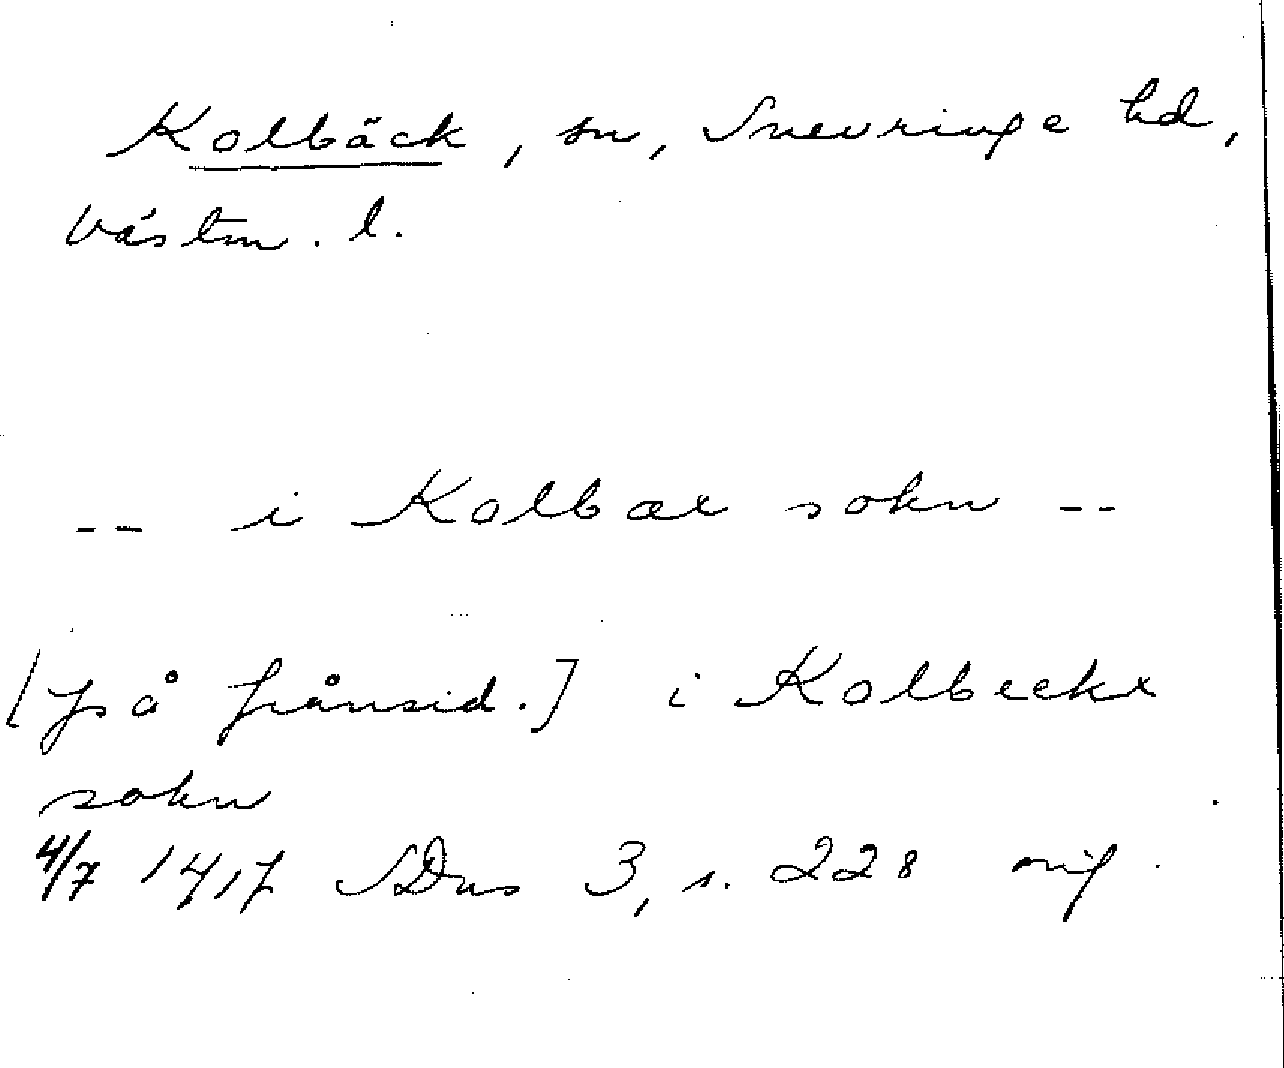 Kolbäck, sn, Snevringe hd,
Västm. l.
-- i Kolbax sokn --
[på frånsid.] i Kolbeckx
sokn
4/7 1417 SDns 3, s. 228 orig.